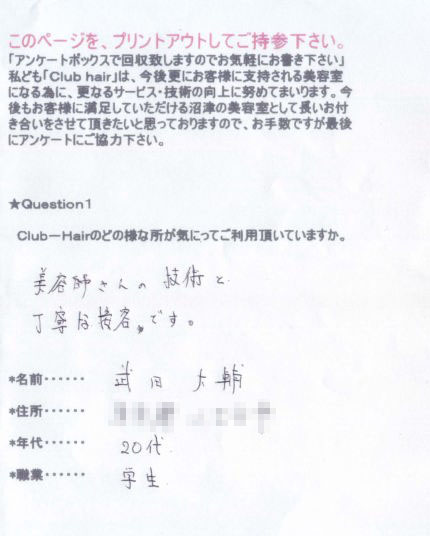 このページを、プリントアウトしてご持参下さい。
「アンケートボックスで回収致しますのでお気軽にお書き下さい」
私ども「Club hair」は、今後更にお客様に支持される美容室
になる為に、更なるサービス・技術の向上に努めてまいります。今
後もお客様に満足していただける沼津の美容室として長いお付
き合いをさせて頂きたいと思っておりますので、お手数ですが最後
にアンケートにご協力下さい。
★Question1
Club－Hairのどの様な所が気にってご利用頂いていますか。
美容師さんの技術と
丁寧な接客。です。
*名前‥‥‥ 武田 大輔
*住所‥‥‥
*年代‥‥‥ 20代
*職業‥‥‥ 学生